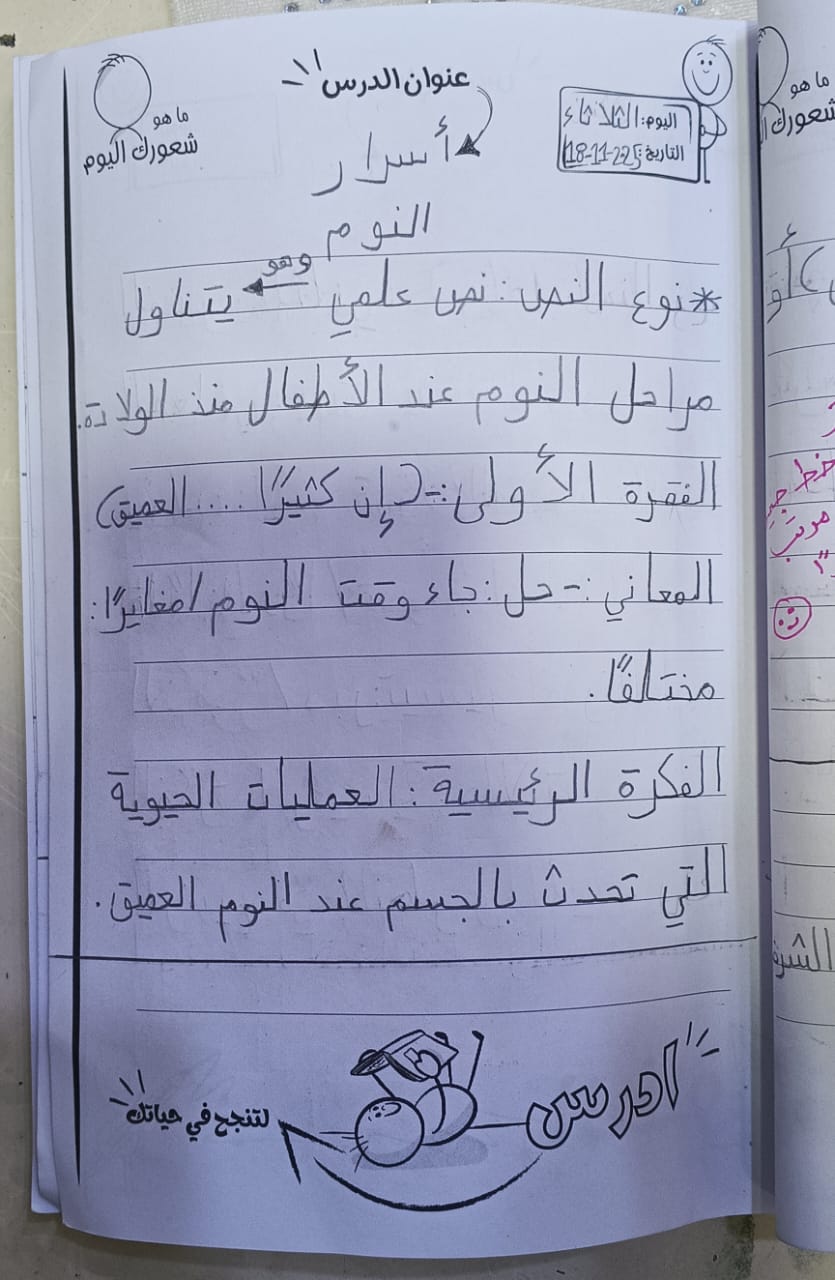 عنوان الدرس
ما هو
شعورك اليوم
اليوم: الثلاثاء
التاريخ: 18-11-225
أسرار
النوم
*نوع النص: نص علمي وهو يتناول
مراحل النوم عند الأطفال منذ الولادة.
الفقرة الأولى:- (إن كثيرًا .... العميق)
المعاني:- حل: جاء وقت النوم / مغايرًا:
مختلفًا.
الفكرة الرئيسية: العمليات الحيوية
التي تحدث بالجسم عند النوم العميق.
ادرس
لتنجح في حياتك
ما هو
شعورك
خط جيد
مرتب